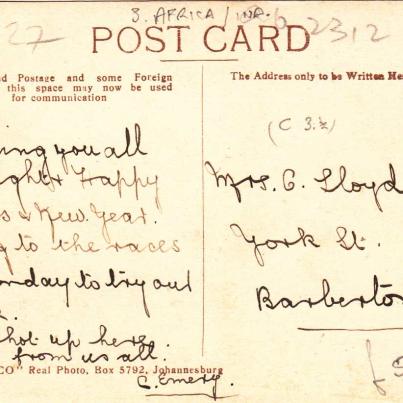 S. AFRICA /
27
2312
POST CARD
nd Postage and some Foreign
this space may now be used
for communication
The Address only to be Written He
(C 3.½)
ing you all
ight & Happy
s & New Year.
g to the races
onday to try out
hot up here.
from us all.
C. Emery.
Mrs. G. Lloyd
York St.
Barberto
CO" Real Photo, Box 5792, Johannesburg